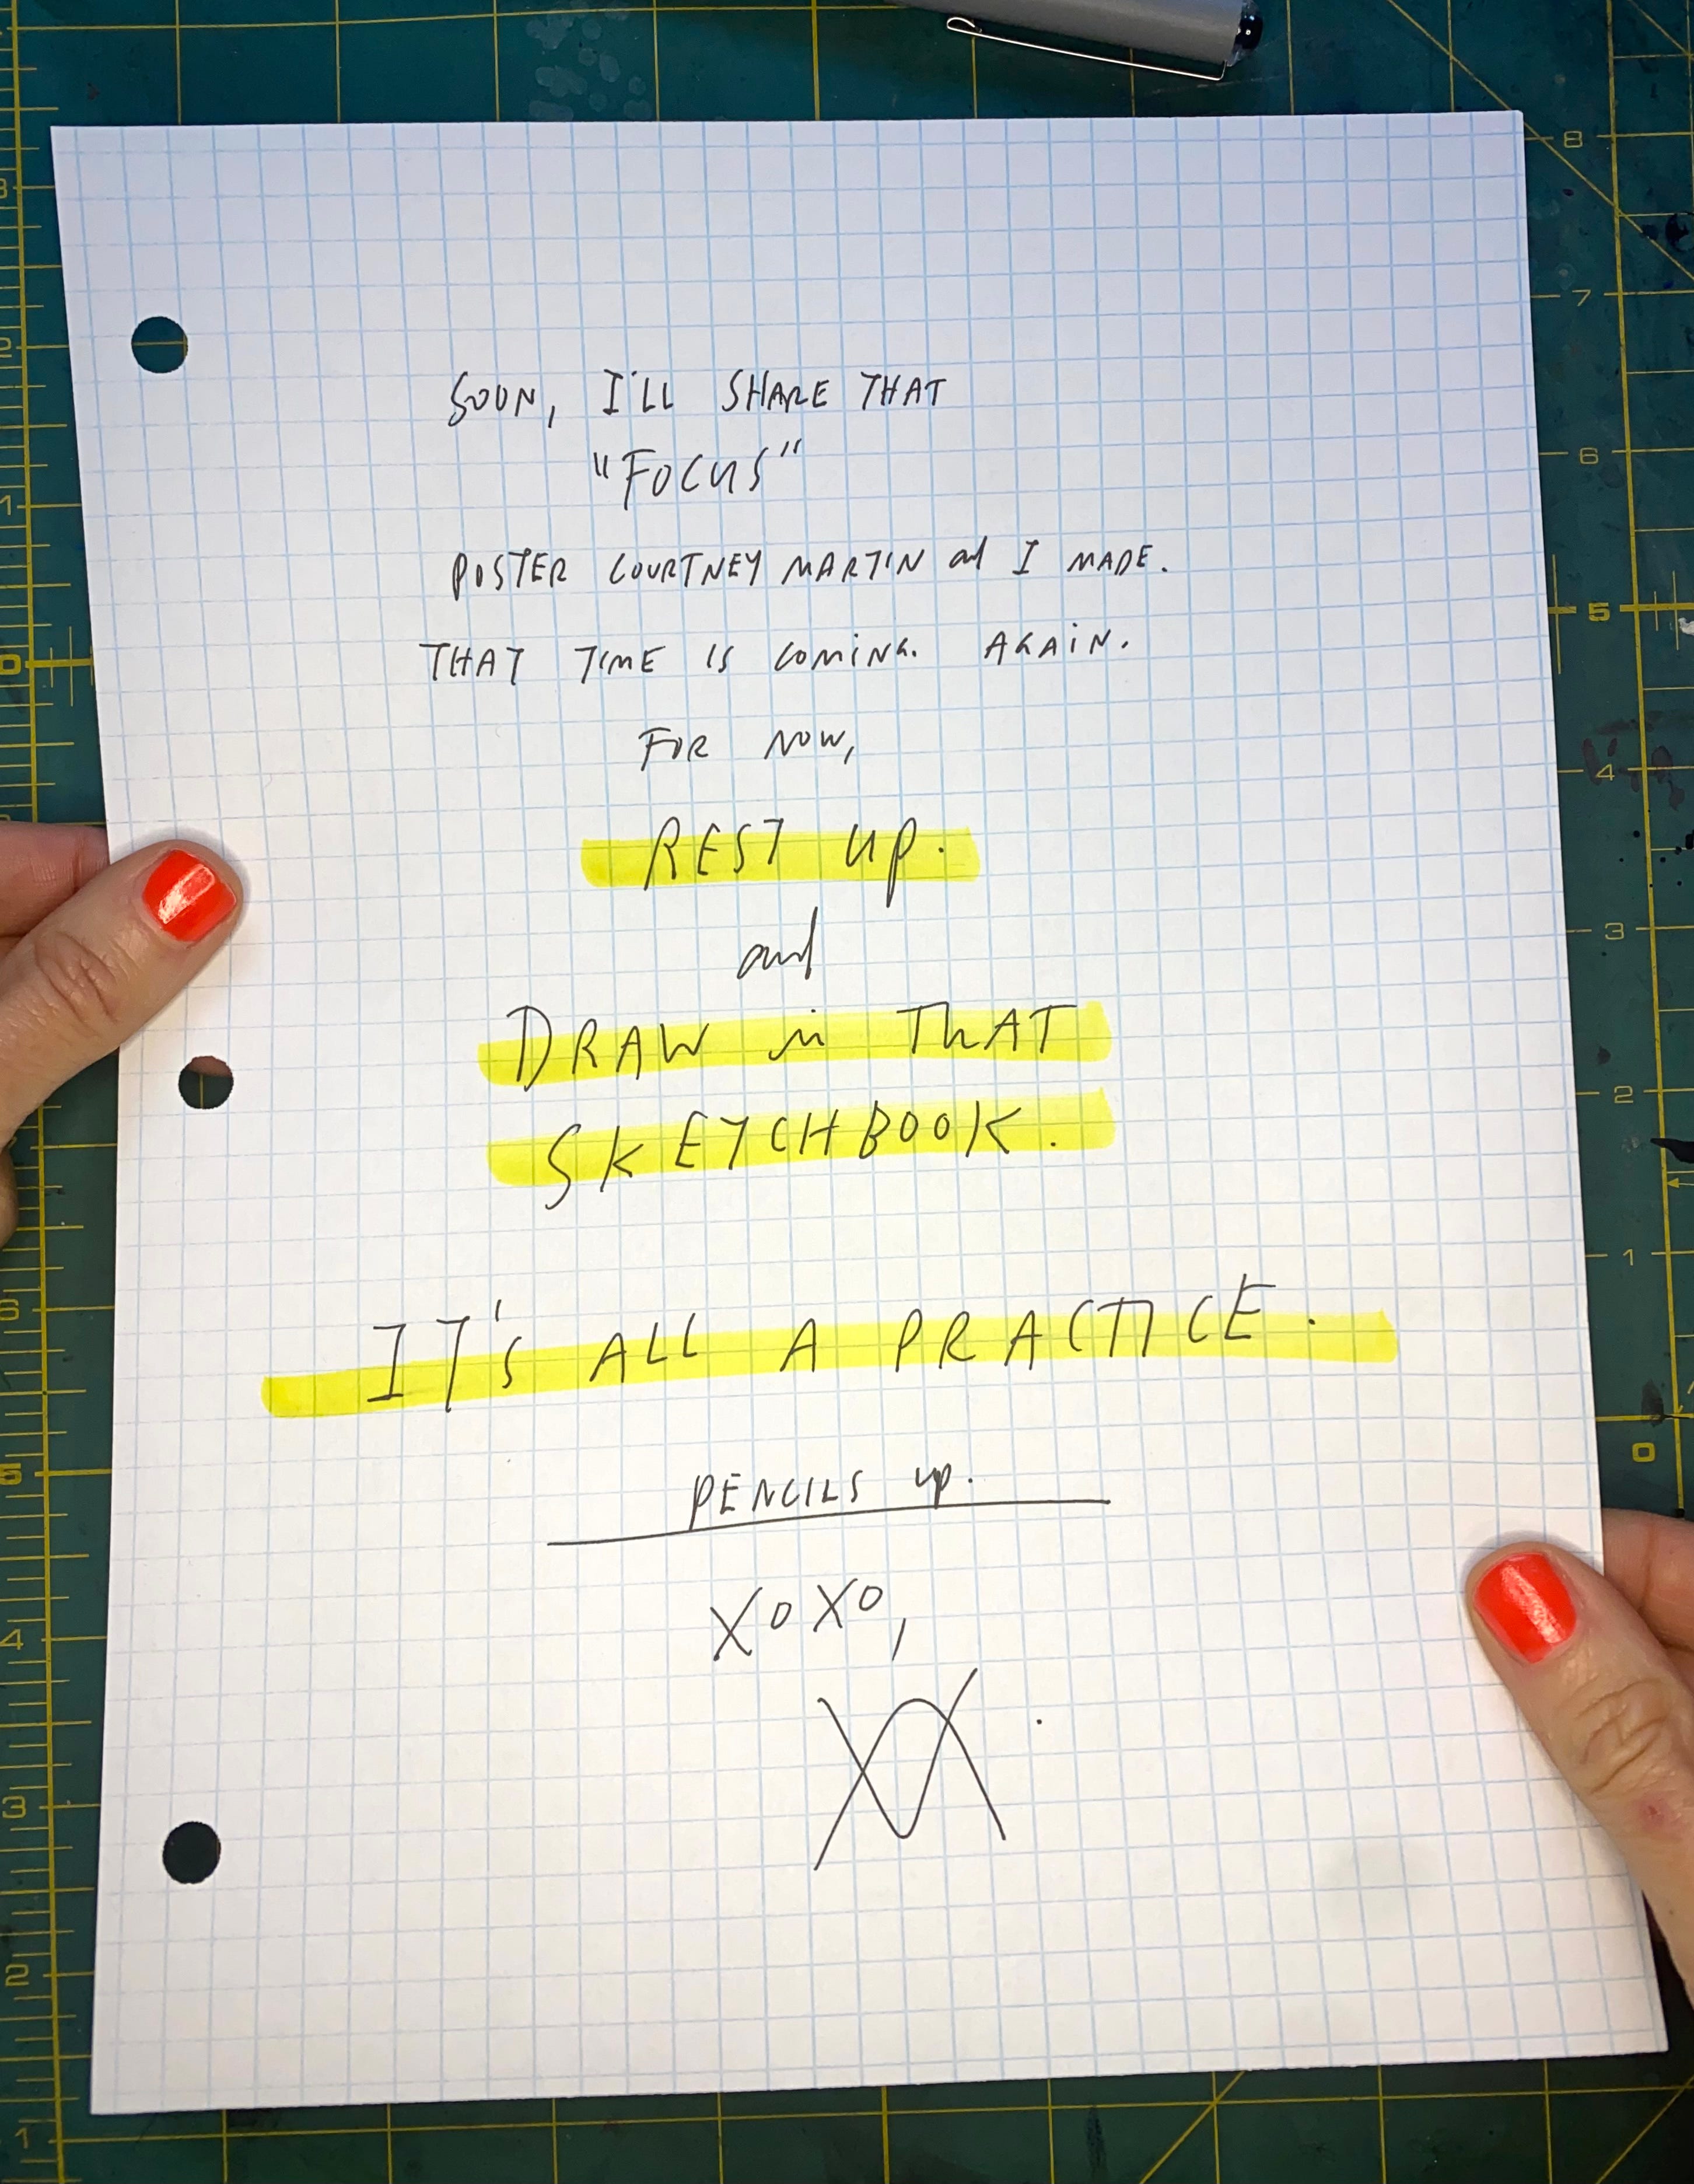 SOON, I'LL SHARE THAT
"FOCUS"
POSTER COURTNEY MARTIN and I MADE.
THAT TIME IS COMING. AGAIN.
FOR NOW,
REST UP.
and
DRAW in THAT
SKETCHBOOK.
IT'S ALL A PRACTICE.
PENCILS up.
XOXO,
8
7
6
5
4
3
2
1
0
3
2
1
0
6
5
4
3
2
1